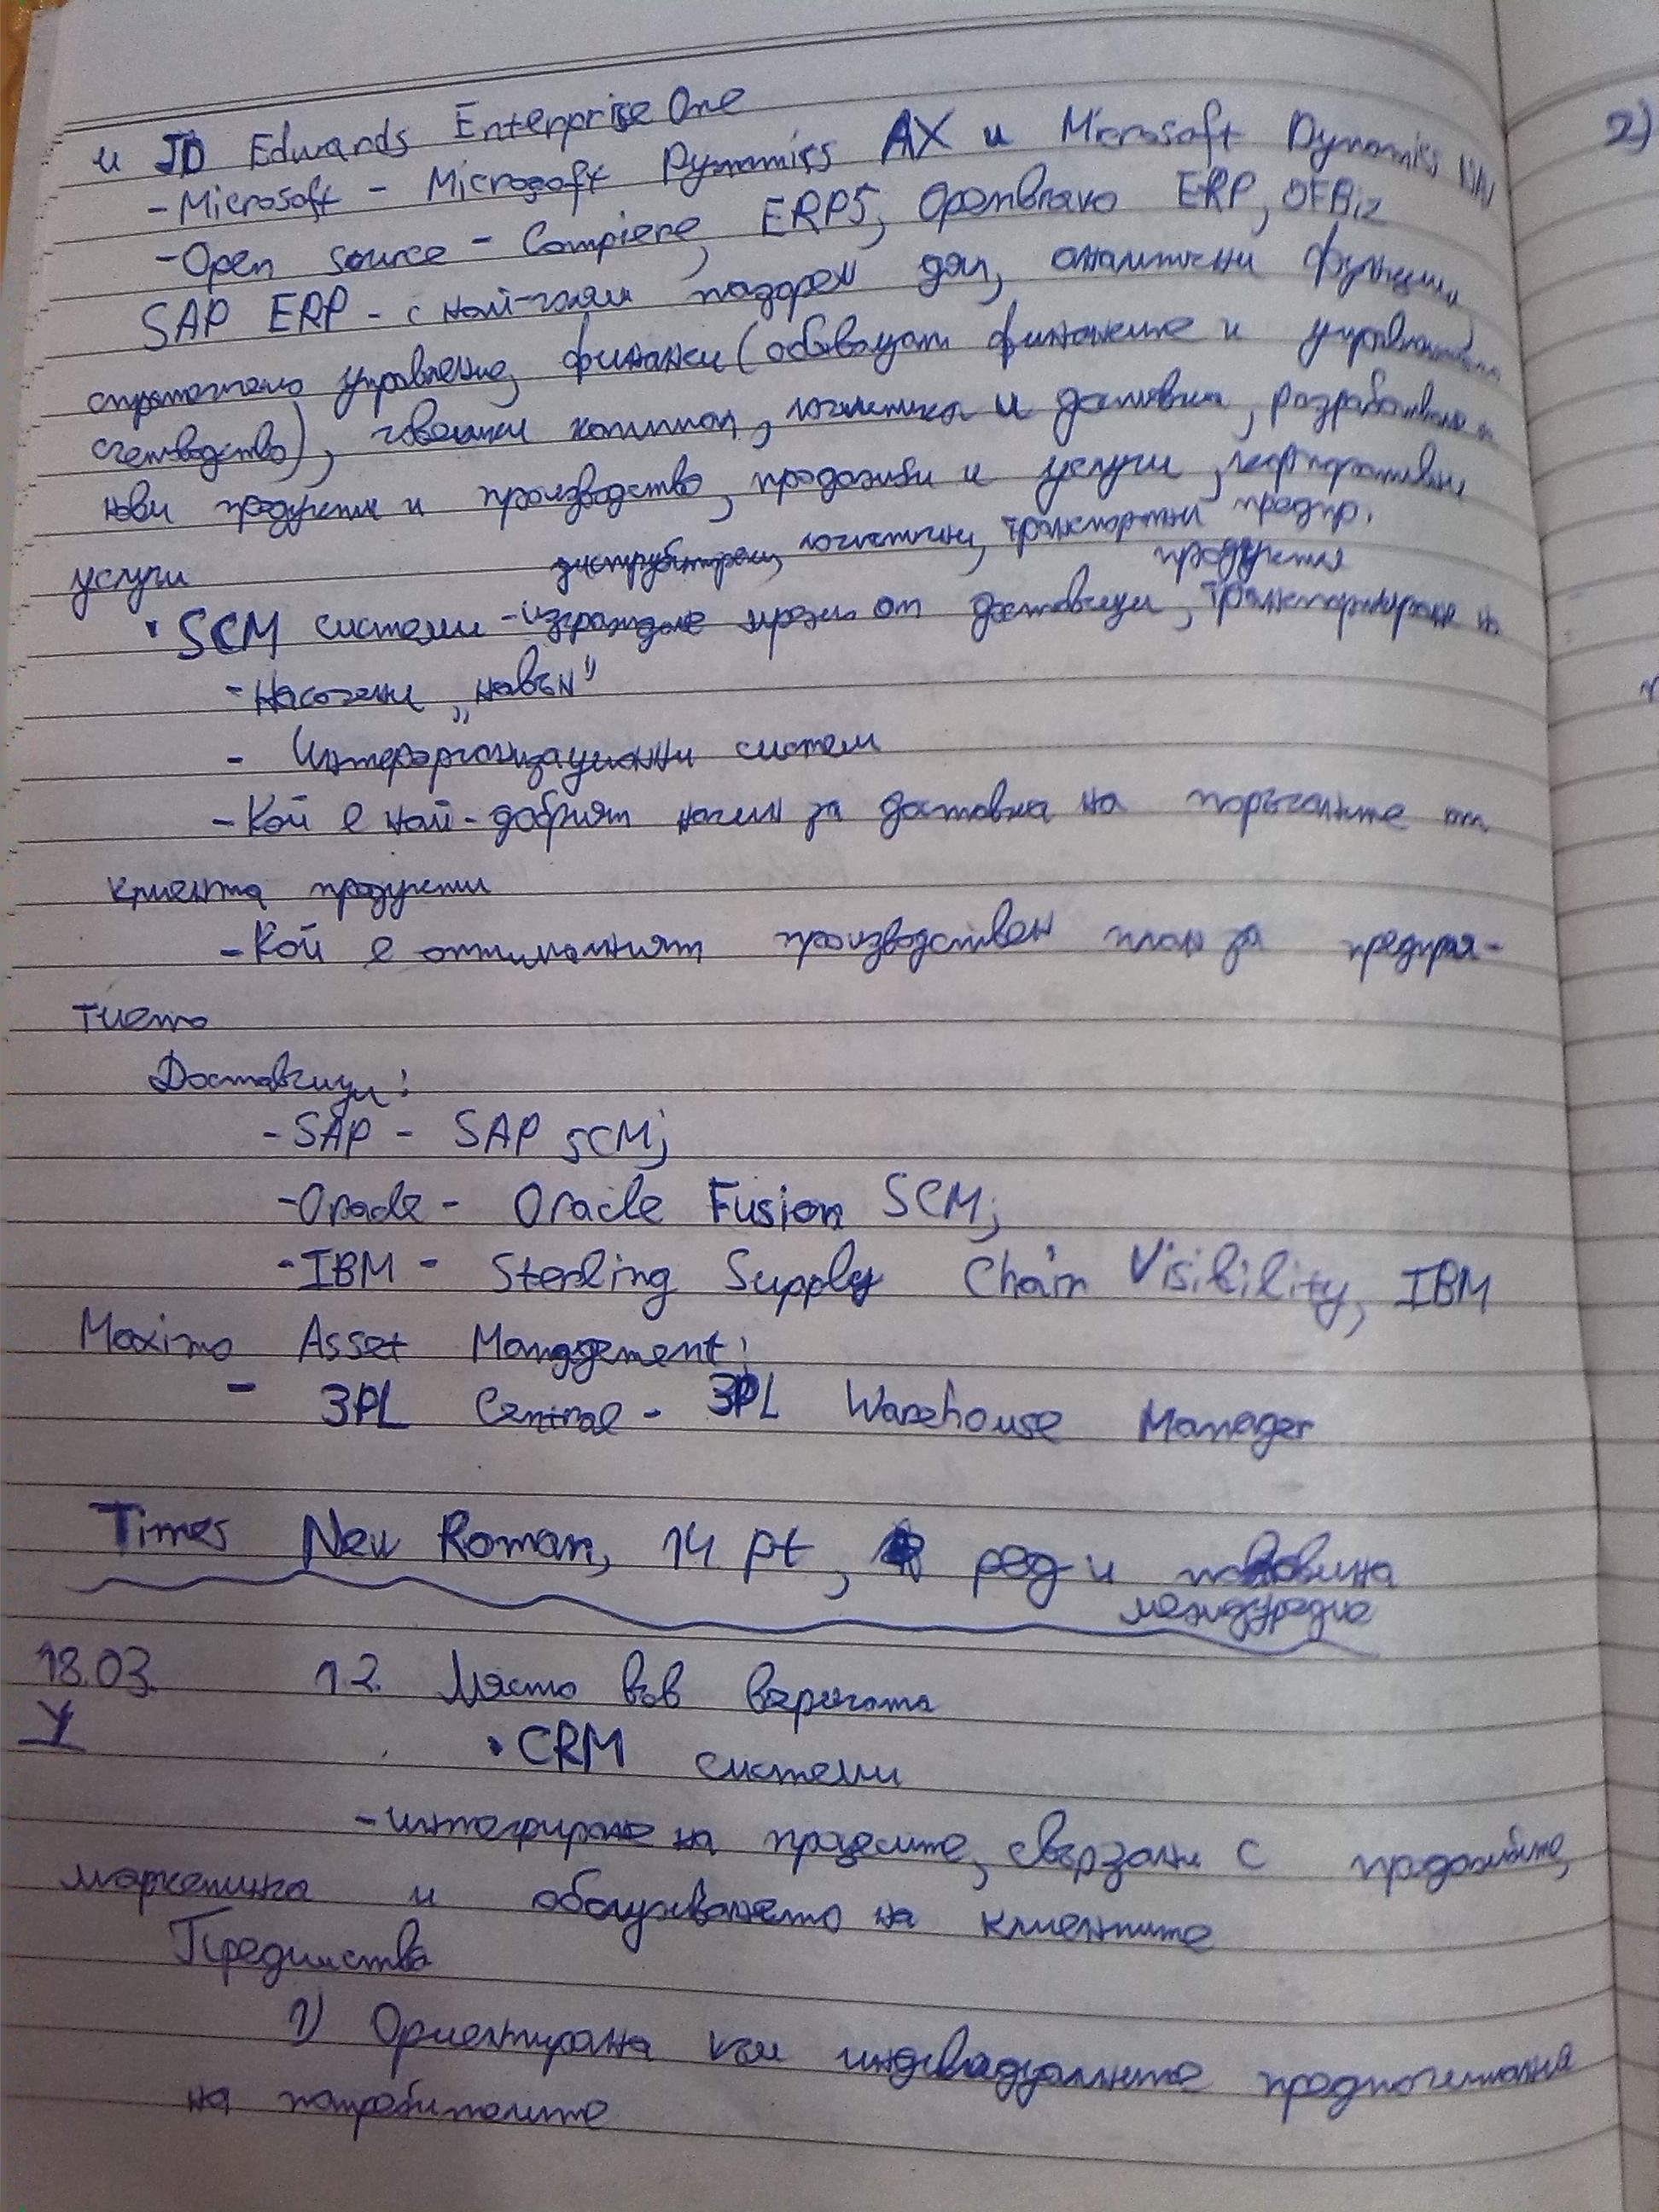 и JD Edwards EnterpriseOne
- Microsoft - Microsoft Dynamics AX и Microsoft Dynamics NAV
- Open source - Compiere, ERP5, ERP, OFBiz
SAP ERP - с най-голям пазарен дял, аналитични функции,
стратегическо управление, финанси (обхващат финансите и управленско
счетоводство), човешки капитал, логистика и доставки, разработване на
нови продукти и производство, продажби и услуги, корпоративни
услуги
дистрибуторски, логистични, транспортни предпр.
продуктия
• SCM системи - изграждане мрежи от доставчици, транспортиране на
- Насочени „навън"
- Интерорганизационни систем
- Кой е най-добрият начин за доставка на поръчаните от
клиента продукти
- Кой е оптималният производствен план за предприя-
тието
Доставчици:
- SAP - SAP SCM;
- Oracle - Oracle Fusion SCM;
- IBM - Sterling Supply Chain Visibility, IBM
Maximo Asset Management;
- 3PL Central - 3PL Warehouse Manager
Times New Roman, 14 pt, ред и половина
междуредие
18.03. 1.2. Място във веригата
У
• CRM системи
- интегриране на процесите, свързани с продажбите,
маркетинга и обслужването на клиентите
Предимства
1) Ориентирана към индивидуалните предпочитания
на потребителите
2)